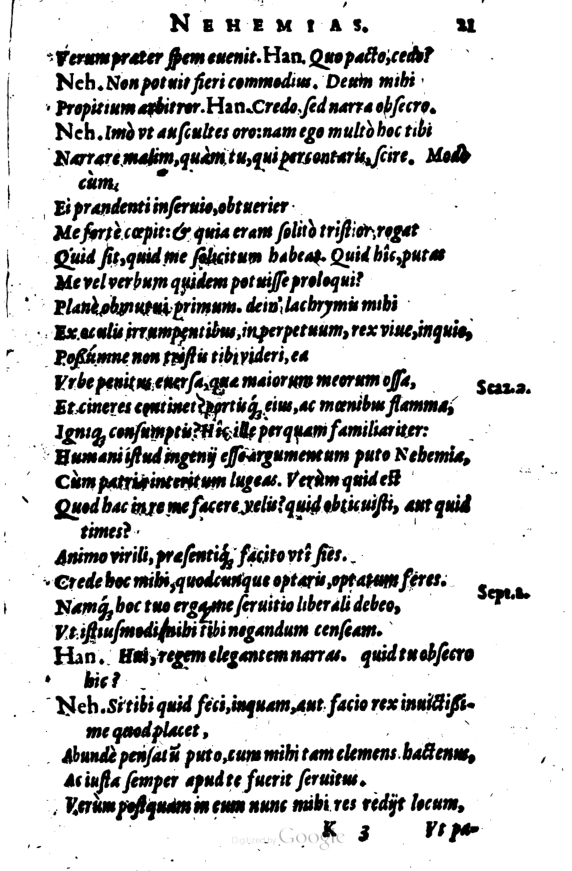 NEHEMIAS. 21
Verum præter spem euenit. Han. Quo pacto, cedo?
Neh. Non potuit fieri commodius. Deum mihi
Propitium arbitror. Han. Credo. sed narra obsecro.
Neh. Imò vt auscultes oro: nam ego multò hoc tibi
Narrare malim, quàm tu, qui percontaris, scire. Modò
cùm
Ei prandenti inseruio, obtuerier
Me fortè cœpit: & quia eram solitò tristior, rogat
Quid sit, quid me solicitum habeat. Quid hîc, putas
Me vel verbum quidem potuisse proloqui?
Planè obmutui primum. dein, lachrymis mihi
Ex oculis irrumpentibus, in perpetuum, rex viue, inquio,
Possúmne non tristis tibi videri, ea
Vrbe penitus euersa, quæ maiorum meorum ossa,
Et cineres continet? portisq́, eius, ac mœnibus flamma,
Igniq́, consumptis? Hîc ille perquam familiariter:
Humani istud ingenij esse argumentum puto Nehemia,
Cùm patriæ interitum lugeas. Verùm quid est
Quod hac in re me facere velis? quid obticuisti, aut quid
times?
Animo virili, præsentiq́, facito vti sies.
Crede hoc mihi, quodcunque optaris, optatum feres.
Namq́, hoc tuo erga me seruitio liberali debeo,
Vt istiusmodi nihil tibi negandum censeam.
Han. Hui, regem elegantem narras. quid tu obsecro
hic?
Neh. Si tibi quid feci, inquam, aut facio rex inuictissi-
me quod placet,
Abundè pensatū puto, cum mihi tam clemens hactenus,
Ac iusta semper apud te fuerit seruitus.
Verùm postquam in eum nunc mihi res redijt locum,
K 3 Vt pa-
Scaz. 2.
Sept. 2.
Digitized by Google